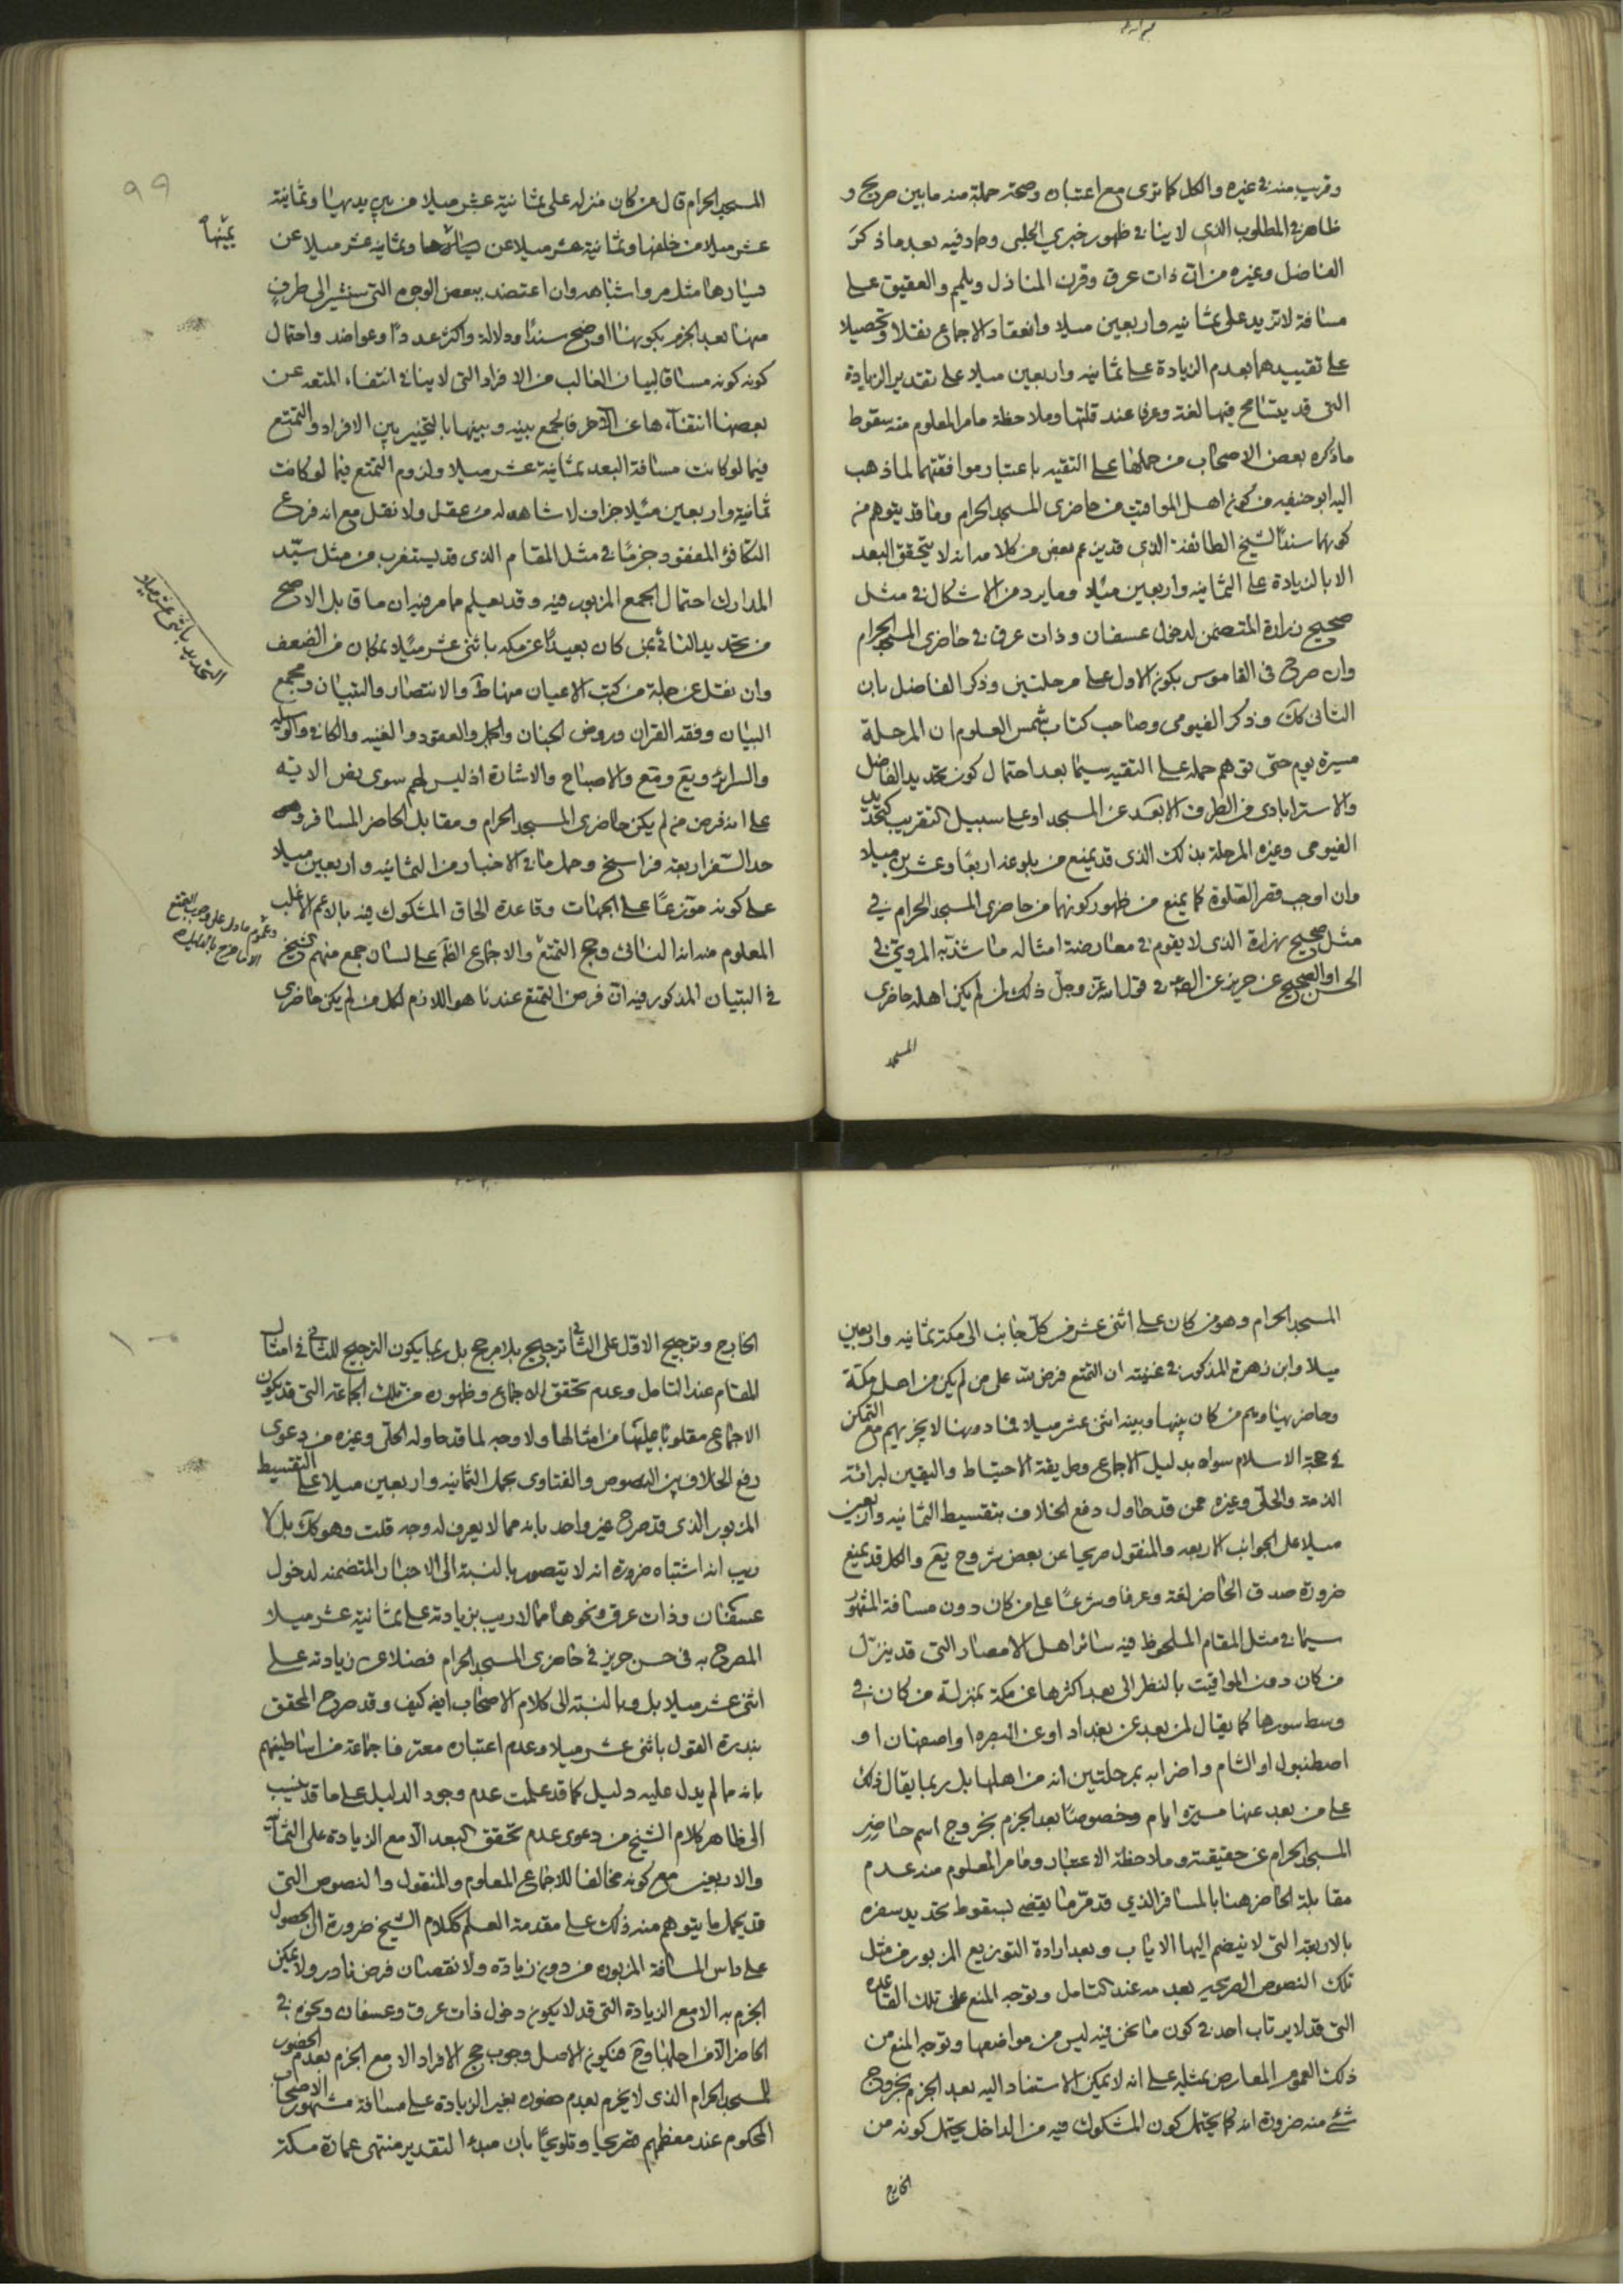 وقريب منه في غيره والكل كما ترى مع اعتباره وصحة جملة منه ما بين صريح و
ظاهر في المطلوب الذي لا ينافي ظهور خبري الحلبي وحماد فيه بعد ما ذكره
الفاضل وغيره من ان ذات عرق وقرن المنازل ويلملم والعقيق على
مسافة لا تزيد على ثمانيه واربعين ميلا وانعقاد الاجماع نقلا وتحصيلا
على تقييدهما بعدم الزيادة على ثمانيه واربعين ميلا على تقدير الزيادة
التي قد يتسامح فيها لغة وعرفا عند قلتها وملاحظة ما مر المعلوم منه سقوط
ما ذكره بعض الاصحاب من حملها على التقيه باعتبار موافقتهما لما ذهب
اليه ابو حنيفه من كون اهل المواقيت من حاضرى المسجد الحرام وما قد يتوهم من
كونهما سندا لشيخ الطائفة الذي قد يزعم بعض من كلامه انه لا يتحقق البعد
الا بالزيادة على الثمانيه واربعين ميلا وما يرد من الاشكال في مثل
صحيح زرارة المتضمن لدخول عسفان وذات عرق في حاضرى المسجد الحرام
وان صرح في القاموس بكون الاول على مرحلتين وذكر الفاضل بان
الثاني كك وذكر الفيومى وصاحب كتاب شمس العلوم ان المرحلة
مسيرة يوم حتى توهم حمله على التقيه سيما بعد احتمال كون تحديد الفاضل
والاسترابادى من الطرف الابعد عن المسجد او على سبيل التقريب كتحديد
الفيومى وغيره المرحلة بذلك الذي قد يمنع من بلوغه اربعا وعشرين ميلا
وان اوجب قصر الصلوة كما يمنع من ظهور كونهما من حاضرى المسجد الحرام في
مثل صحيح زرارة الذي لا يقوم في معارضة امثاله ما شذ به المروي في
الحسن او الصحيح عن حريز عن الصادق في قول الله عز وجل ذلك لمن لم يكن اهله حاضرى
المسجد
٩٩
المسجد الحرام قال من كان منزله على ثمانية عشر ميلا من بين يديها وثمانية
عشر ميلا من خلفها وثمانية عشر ميلا عن يمينها وثمانيه عشر ميلا عن
يمينها
يسارها مثل مر واشباهه وان اعتضد ببعض الوجوه التي ستشير الى طرف
منها بعد الجزم بكونها اوضح سندا ودلالة واكثر عددا وعواضد واحتمال
كونه كونه مساقا لبيان الغالب من الافراد التي لا ينافي انتفاء المتعه عن
بعضها انتفاءها عن الاخر فالجمع بينه وبينها بالتخيير بين الافراد والتمتع
فيما لو كانت مسافة البعد ثمانية عشر ميلا ولزوم التمتع فيما لو كانت
ثمانية واربعين ميلا جزاف لا شاهد له من عقل ولا نقل مع انه فرع
التكافؤ المفقود جزما في مثل المقام الذي قد يستغرب من مثل سيّد
المدارك احتمال الجمع المزبور فيه وقد يعلم مما مر فيه ان ما قابل الاصح
من تحديد النائى بمن كان بعيدا عن مكه باثني عشر ميلا بمكان من الضعف
التحديد باثني عشر ميلا
وان نقل عن جملة من كتب الاعيان منها ط والانتصار والتبيان ومجمع
البيان وفقه القران وروض الجنان والجمل والعقود والغنيه والكافي والوسيله
والسرائر ويع وقع والاصباح والاشارة اذ ليس لهم سوى نص الايه
على انه فرض من لم يكن حاضرى المسجد الحرام ومقابل الحاضر المسافر و
حد السفر اربعة فراسخ وحمل ما في الاخبار من الثمانيه واربعين ميلا
على كونه موزعا على الجهات وقاعدة الحاق المشكوك فيه بالاعم الاغلب
وعموم ما دل على وجوب التمتع الا ما خرج بالدليل
المعلوم منه انه النائى وحج التمتع والاجماع الظ على لسان جمع منهم الشيخ
في التبيان المذكور فيه ان فرض التمتع عندنا هو اللازم لكل من لم يكن حاضرى
المسجد الحرام وهو من كان على اثني عشر من كل جانب الى مكة ثمانيه واربعين
ميلا وابن زهرة المذكور في غنيته ان التمتع فرض الله على من لم يكن من اهل مكة
وحاضريها وهم من كان بينها وبينه اثني عشر ميلا فما دونها لا يجزيهم مع التمكن
في حجة الاسلام سواه بدليل الاجماع وطريقة الاحتياط واليقين لبرائة
الذمة والحلى وغيره ممن قد حاول دفع الخلاف بتقسيط الثمانيه واربعين
ميلا على الجوانب الاربعه والمنقول صريحا عن بعض شروح يع والكل قد يمنع
ضرورة صدق الحاضر لغة وعرفا وشرعا على من كان دون مسافة المشهور
سيما في مثل المقام الملحوظ فيه سائر اهل الامصار التي قد ينزل
من كان دون المواقيت بالنظر الى بعد اكثرها عن مكة بمنزلة من كان في
وسط سورها كما يقال لمن بعد عن بغداد او عن البصره او اصفهان او
اصطنبول او الشام واضرابه بمرحلتين انه من اهلها بل ربما يقال ذلك
على من بعد عنها مسيرة ايام وخصوصا بعد الجزم بخروج اسم حاضر
المسجد الحرام عن حقيقته وملاحظة الاعتبار وما مر المعلوم منه عدم
مقابلة الحاضر هنا بالمسافر الذي قد مر ما يقضى بسقوط تحديد سفره
بالاربعة التي لا ينضم اليها الاياب وبعد ارادة التوزيع المزبور من مثل
تلك النصوص الصريحه بعدمه عند التامل وتوجه المنع على تلك القاعده
التي قد لا يرتاب احد في كون ما نحن فيه ليس من مواضعها وتوجه المنع من
ذلك العموم المعارض بمثله على انه لا يمكن الاستناد اليه بعد الجزم بخروج
شئ منه ضرورة انه كما يحتمل كون المشكوك فيه من الداخل يحتمل كونه من
الخارج
١٠٠
الخارج وترجيح الاول على الثاني ترجيح بلا مرجح بل ربما يكون الترجيح للثاني في امثال
المقام عند التامل وعدم تحقق الاجماع وظهوره من تلك الجماعة التي قد يكون
الاجماع مقلوبا عليها من امثالها ولا وجه لما قد حاوله الحلى وغيره من دعوى
رفع الخلاف بين النصوص والفتاوى بحمل الثمانيه واربعين ميلا على التقسيط
المزبور الذي قد صرح غير واحد بانه مما لا يعرف له وجه قلت وهو كك بل لا
ريب انه اشتباه ضرورة انه لا يتصور بالنسبة الى الاخبار المتضمنه لدخول
عسفان وذات عرق ونحوها مما لا ريب بزيادته على ثمانية عشر ميلا
المصرح به في حسن حريز في حاضرى المسجد الحرام فضلا عن زيادته على
اثني عشر ميلا بل وبالنسبة الى كلام الاصحاب ايضا كيف وقد صرح المحقق
بندرة القول باثني عشر ميلا وعدم اعتباره معترفا جماعة من اساطينهم
بانه مما لم يدل عليه دليل كما قد علمت عدم وجود الدليل على ما قد ينسب
الى ظاهر كلام الشيخ من دعوى عدم تحقق البعد الا مع الزيادة على الثمانيه
والاربعين مع كونه مخالفا للاجماع المعلوم والمنقول والنصوص التي
قد يحمل ما يتوهم منه ذلك على مقدمة العلم ككلام الشيخ ضرورة ان الحصول
على راس المسافة المزبوره من دون زيادة ولا نقصان فرض نادر ولا يمكن
الجزم به الا مع الزيادة التي قد لا يكون دخول ذات عرق وعسفان ونحوهم في
الحاضر الا من اجلها وح فيكون الاصل وجوب حج الافراد الا مع الجزم بعدم الحضور
للمسجد الحرام الذي لا يجزم بعدم حضوره بغير الزيادة على مسافة مشهور الاصحاب
المحكوم عند معظمهم تصريحا وتلويحا بان مبدا التقدير منتهى عمارة مكة